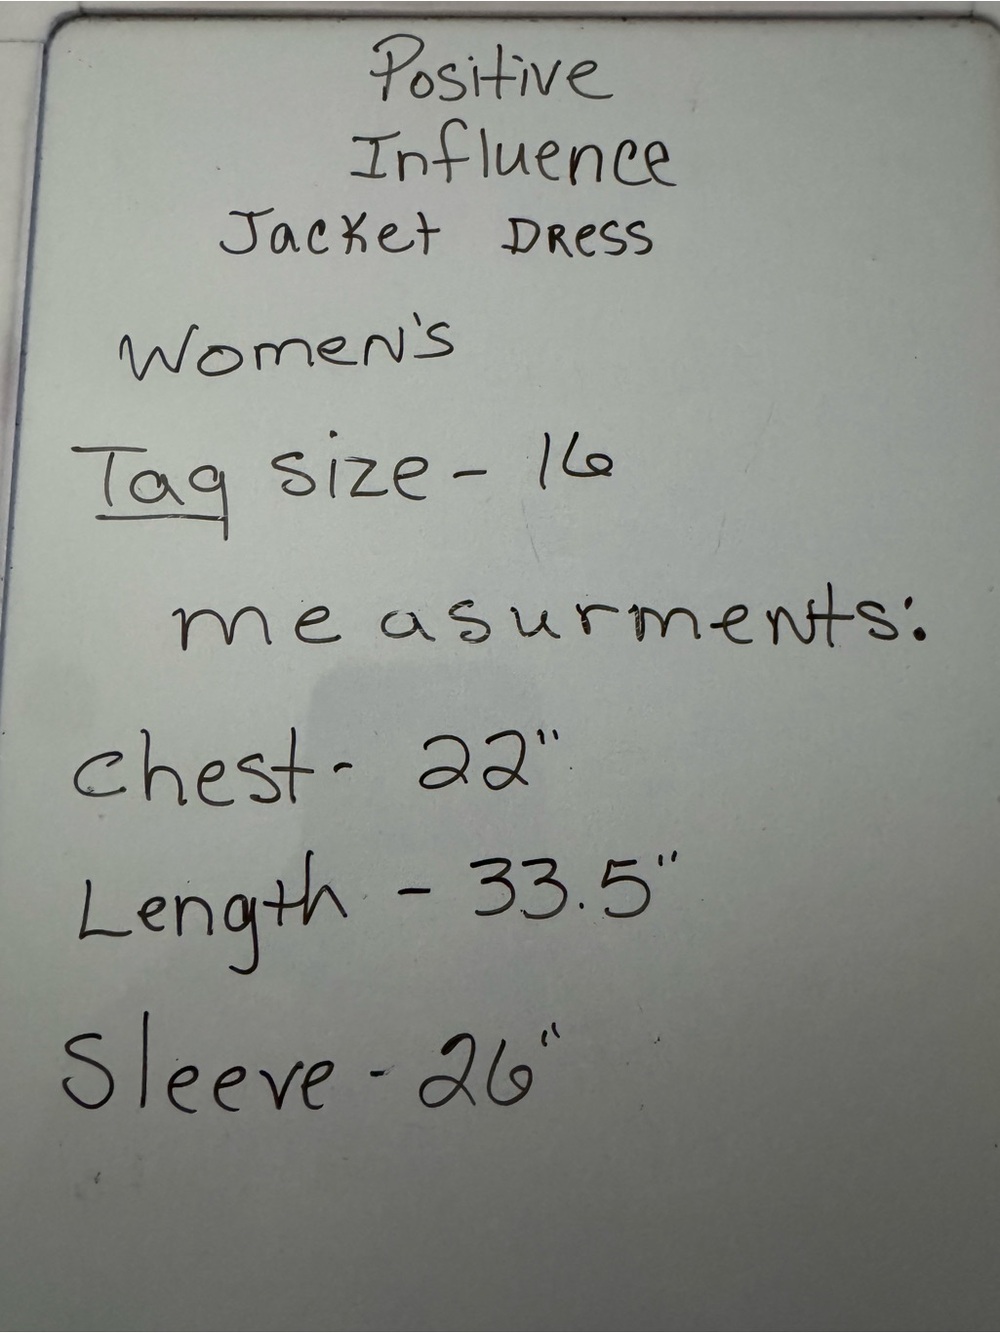 Positive
Influence
Jacket Dress
Women's
Tag size - 16
measurments:
chest - 22"
Length - 33.5"
Sleeve - 26"